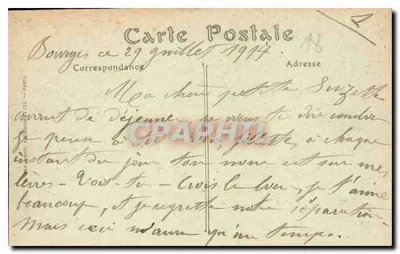 Carte Postale
Bourges ce 29 juillet 1917
Correspondance
Adresse
Ma chère petite Suzette
avant de déjeuner je viens te dire combien
je pense à toi à chaque
instant du jour ton nom est sur mes
lèvres - Vois-tu - Crois le bien, je t'aime
beaucoup, et je regrette notre séparation
Mais ceci n'aura qu'un temps.
CPARHPHIL